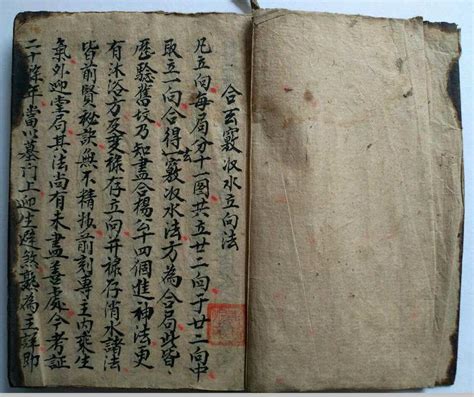 合玄竅収水立向法
凡立向每局分十一圖共立廿二向于廿二向中
取立一向合得一玄竅収水法方為合局此皆
歷驗舊坟乃知盡合楊公十四個進神法更
有沐浴方及変祿存立向并祿存消水諸法
皆前賢秘訣無不精妙前刻專主內乘生
氣外迎堂局其法尚有未盡善處今考証
二十餘年當以墓門上迎生避煞為主詳即